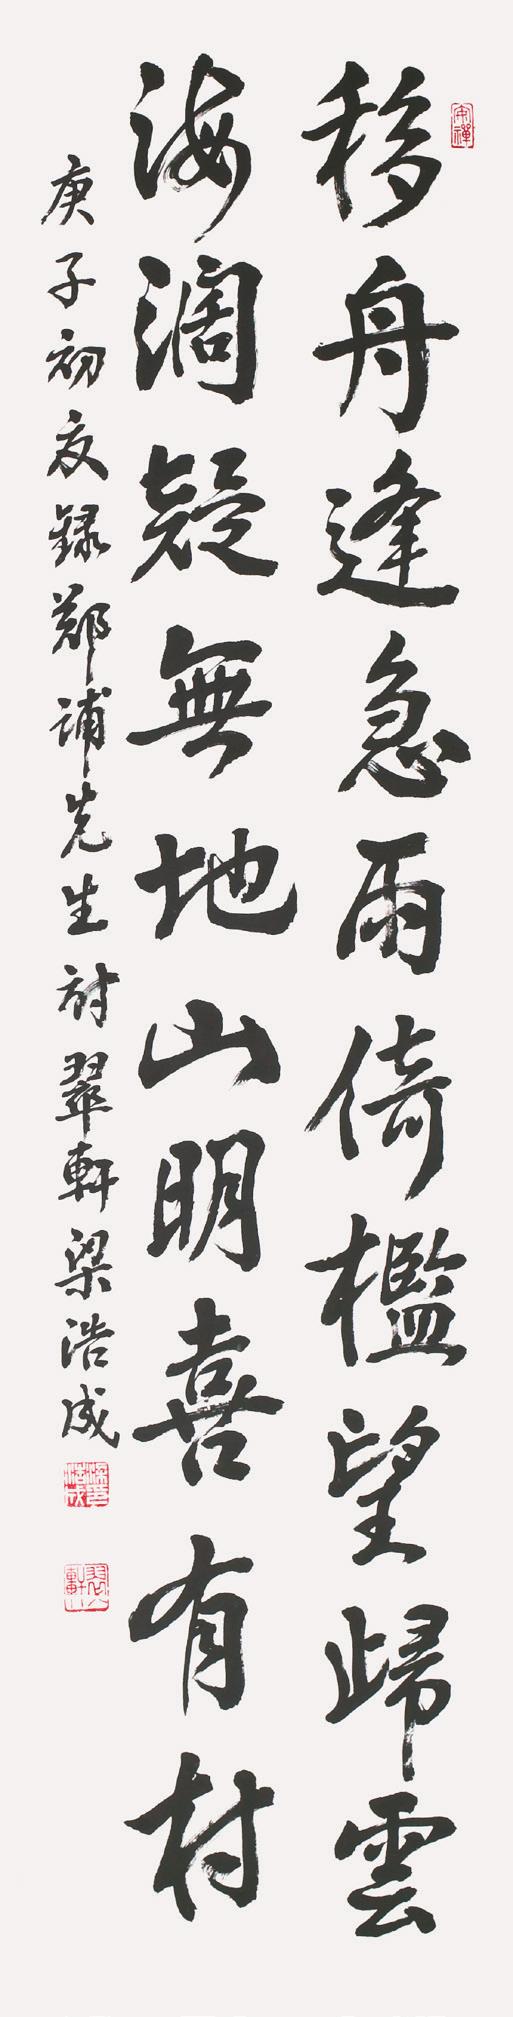 移舟逢急雨倚檻望歸雲
海濶疑無地山明喜有村
庚子初夏錄鄭誧先生詩翠軒梁浩成
梁浩成
翠軒